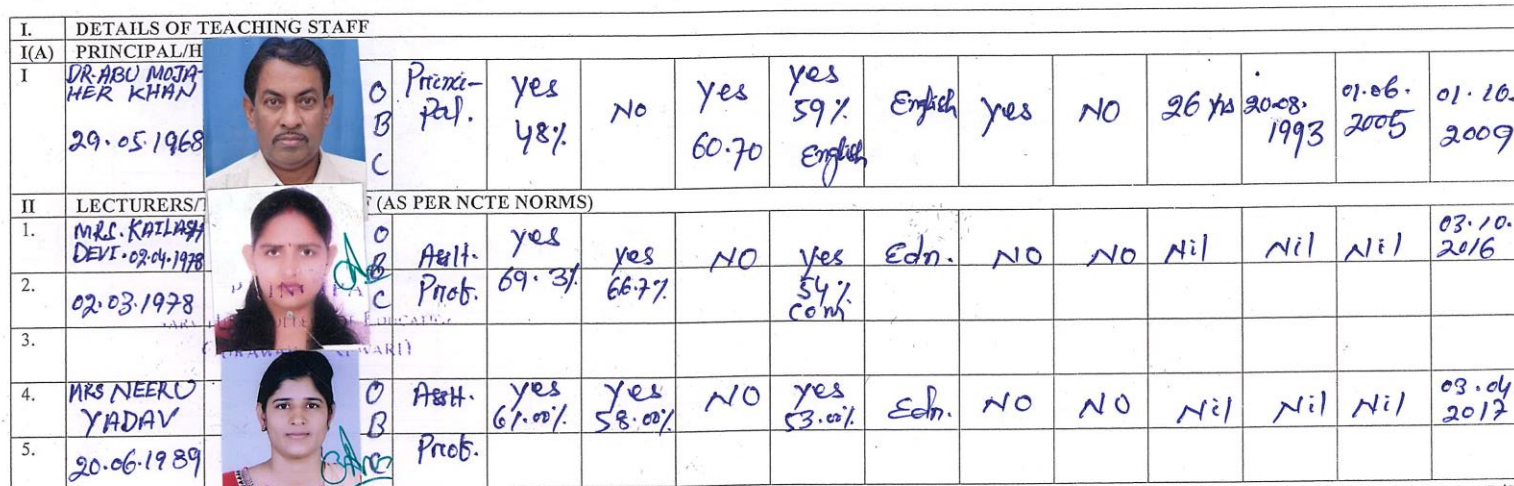 I. DETAILS OF TEACHING STAFF
I(A) PRINCIPAL/H
I DR. ABU MOJA-
HER KHAN
29.05.1968
O
B
C
Princi-
pal.
yes
48%
NO
yes
60.70
yes
59%
English
English
yes
NO
26 yrs
20.08.
1993
01.06.
2005
01.10.
2009
II LECTURERS/ (AS PER NCTE NORMS)
1. MRS. KAILASH
DEVI.02.04.1978
2. 02.03.1978
O
B
C
Asstt.
Prof.
yes
69.3%
yes
66.7%
NO
yes
54%
Com
Edn.
NO
NO
Nil
Nil
Nil
03.10.
2016
3.
4. MRS NEERU
YADAV
5. 20.06.1989
O
B
C
Asstt.
Prof.
yes
61.00%
yes
58.00%
NO
yes
53.00%
Edn.
NO
NO
Nil
Nil
Nil
03.04
2017